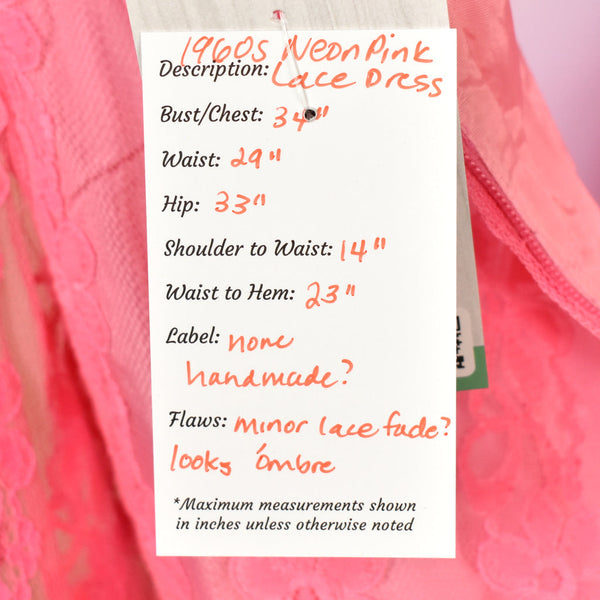 1960s Neon Pink
Description: Lace Dress
Bust/Chest: 34"
Waist: 29"
Hip: 33"
Shoulder to Waist: 14"
Waist to Hem: 23"
Label: none
handmade?
Flaws: minor lace fade?
looks ómbre
*Maximum measurements shown
in inches unless otherwise noted